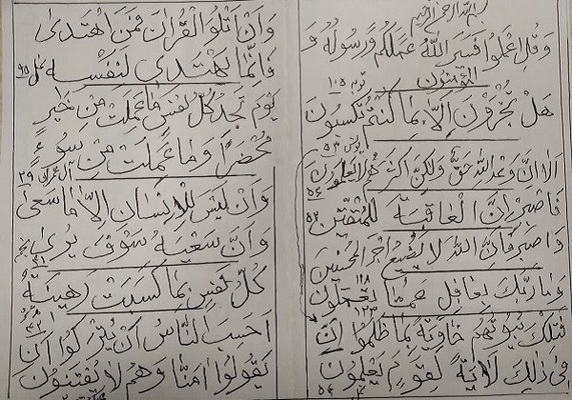 بسم الله الرحمن الرحيم
وَقُلِ اعْمَلُوا فَسَيَرَى اللّٰهُ عَمَلَكُمْ وَرَسُولُهُ وَ
الْمُؤْمِنُونَ توبه ١٠٥
هَلْ تُجْزَوْنَ إِلَّا بِمَا كُنْتُمْ تَكْسِبُونَ
يونس ٥٢
اَلَا اِنَّ وَعْدَ اللّٰهِ حَقٌّ وَلٰكِنَّ اَكْثَرَهُمْ لَا يَعْلَمُونَ
فَاصْبِرْ اِنَّ الْعَاقِبَةَ لِلْمُتَّقِينَ
وَاصْبِرْ فَاِنَّ اللّٰهَ لَا يُضِيعُ اَجْرَ الْمُحْسِنِينَ
وَمَا رَبُّكَ بِغَافِلٍ عَمَّا يَعْمَلُونَ
فَتِلْكَ بُيُوتُهُمْ خَاوِيَةً بِمَا ظَلَمُوا اِنَّ
فِي ذٰلِكَ لَاٰيَةً لِقَوْمٍ يَعْلَمُونَ
وَاَنْ اَتْلُوَ الْقُرْاٰنَ فَمَنِ اهْتَدَىٰ
فَاِنَّمَا يَهْتَدِي لِنَفْسِهِ نمل
يَوْمَ تَجِدُ كُلُّ نَفْسٍ مَا عَمِلَتْ مِنْ خَيْرٍ
مُحْضَرًا وَمَا عَمِلَتْ مِنْ سُوءٍ
وَاَنْ لَيْسَ لِلْاِنْسَانِ اِلَّا مَا سَعَىٰ
وَاَنَّ سَعْيَهُ سَوْفَ يُرَىٰ
كُلُّ نَفْسٍ بِمَا كَسَبَتْ رَهِينَةٌ
اَحَسِبَ النَّاسُ اَنْ يُتْرَكُوا اَنْ
يَقُولُوا اٰمَنَّا وَهُمْ لَا يُفْتَنُونَ